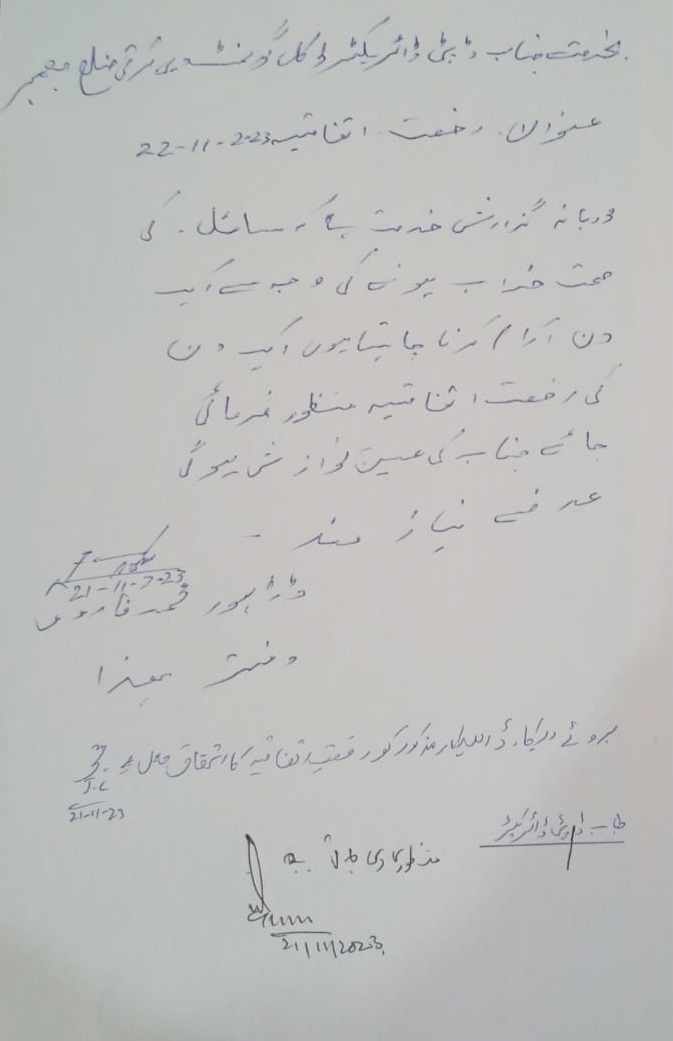 بخدمت جناب ڈپٹی ڈائریکٹر لوکل گورنمنٹ دیہی ترقی ضلع بھمبر
عنوان۔ رخصت اتفاقیہ 22-11-2023
مودبانہ گزارش خدمت ہے کہ سائل۔ کی
صحت خراب ہونے کی وجہ سے ایک
دن آرام کرنا چاہتا ہوں ایک دن
کی رخصت اتفاقیہ منظور فرمائی
جائے جناب کی عین نوازش ہو گی
عرضے نیاز مند -
21-11-2023
ڈرائیور محمد فاروق
دفتر ہذا
بروئے ریکارڈ اہلکار مذکور کو رخصت اتفاقیہ کا استحقاق حاصل ہے
21-11-23
جناب ڈپٹی ڈائریکٹر
منظوری دی جاتی ہے
21/11/2023